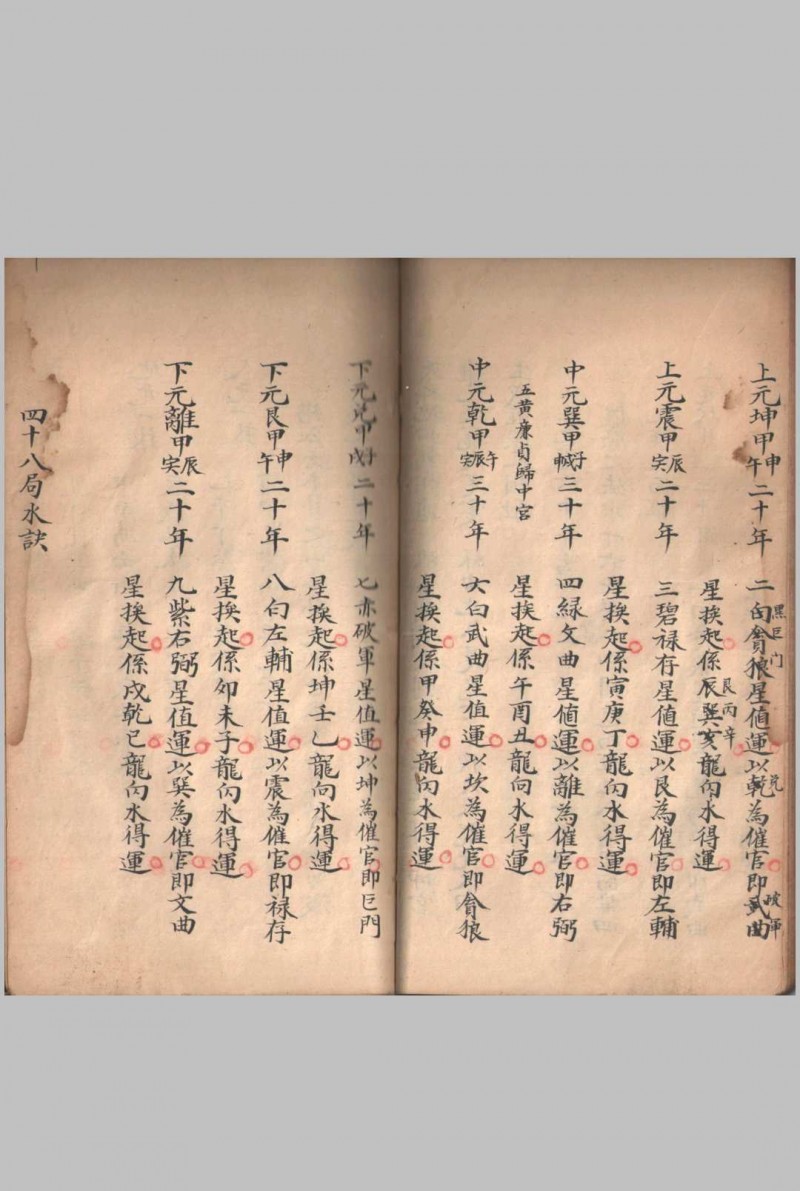 上元坤甲申午二十年　二白貪狼星值運以乾為催官即武曲
黑巨门　兌　破軍
星挨起係辰巽亥龍向水得運
艮丙辛
上元震甲辰寅二十年　三碧禄存星值運以艮為催官即左輔
星挨起係寅庚丁龍向水得運
中元巽甲子申三十年　四緑文曲星值運以離為催官即右弼
五黄廉貞歸中宮
星挨起係午酉丑龍向水得運
中元乾甲午辰寅三十年　六白武曲星值運以坎為催官即貪狼
星挨起係甲癸申龍向水得運
下元兌甲子戌二十年　七赤破軍星值運以坤為催官即巨門
星挨起係坤壬乙龍向水得運
下元艮甲申午二十年　八白左輔星值運以震為催官即禄存
星挨起係卯未子龍向水得運
下元離甲辰寅二十年　九紫右弼星值運以巽為催官即文曲
星挨起係戌乾巳龍向水得運
四十八局水訣